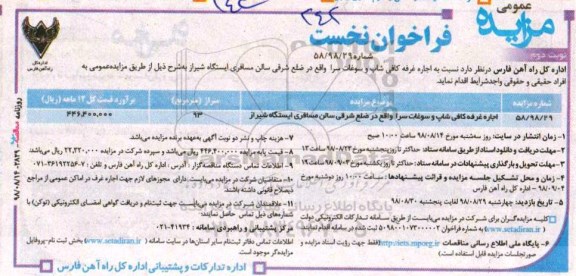 مزایده عمومی
فراخوان نخست
شماره ۵۸/۹۸/۲۹
نوبت دوم
اداره کل راه آهن فارس درنظر دارد نسبت به اجاره غرفه کافی شاپ و سوغات سرا واقع در ضلع شرقی سالن مسافری ایستگاه شیراز به‌شرح ذیل از طریق مزایده‌عمومی به
افراد حقیقی و حقوقی واجدشرایط اقدام نماید.
شماره مزایده
موضوع مزایده
متراژ (مترمربع)
برآورد قیمت کل ۱۲ ماهه (ریال)
۵۸/۹۸/۲۹
اجاره غرفه کافی شاپ و سوغات سرا واقع در ضلع شرقی سالن مسافری ایستگاه شیراز
۹۳
۴۴۶,۴۰۰,۰۰۰
۱- زمان انتشار در سایت: روز سه‌شنبه مورخ ۹۸/۰۸/۱۴ ساعت ۱۰:۰۰ صبح
۲- مهلت دریافت و دانلود اسناد از طریق سامانه ستاد: حداکثر تا روز پنجشنبه مورخ ۹۸/۰۸/۲۳ ساعت ۱۳
۳- مهلت تحویل و بارگذاری پیشنهادات در سامانه ستاد: حداکثر تا
۴- زمان و محل تشکیل جلسه مزایده و قرائت پیشنهادها: ساعت ۱۰:۰۰ روز دوشنبه مورخ
۹۸/۰۹/۰۴ – اداره کل راه آهن فارس
۵- تاریخ بازدید: چهارشنبه ۹۸/۰۸/۲۹ لغایت پنجشنبه ۹۸/۰۸/۳۰
کلیه مزایده‌گران برای شرکت در مزایده می‌بایست از طریق سامانه تدارکات الکترونیکی دولت
(www.setadiran.ir) به شماره فراخوان
۶- پایگاه ملی اطلاع رسانی مناقصات http://iets.mporg.ir (فقط جهت رؤیت اسناد مزایده و
صورتجلسات مزایده قابل استفاده است)
۷- هزینه چاپ و نشر دو نوبت آگهی به‌عهده برنده مزایده می‌باشد.
۸- قیمت پایه مزایده ۴۴۶,۴۰۰,۰۰۰ ریال می‌باشد و سپرده شرکت در مزایده ۲۲,۳۲۰,۰۰۰ ریال می‌باشد.
۹- اطلاعات تماس دستگاه مناقصه‌گزار: آدرس: اداره کل راه آهن فارس و تلفن:
۱۰- متقاضیان شرکت در مزایده می‌بایست دارای مجوزهای لازم جهت اجاره غرف در اماکن عمومی از مراجع
ذیصلاح قانونی داشته باشند.
۱۱- علاقمندان شرکت در مزایده می‌بایست جهت ثبت‌نام و دریافت گواهی امضای الکترونیکی (توکن) با
شماره‌های ذیل تماس حاصل نمایند:
مرکز پشتیبانی و راهبری سامانه: ۴۱۹۳۴-۰۲۱
اطلاعات تماس دفاتر ثبت‌نام سایر استان‌ها در سایت سامانه (www.setadiran.ir) بخش ثبت نام-پروفایل
مزایده‌گر موجود است.
اداره تدارکات و پشتیبانی اداره کل راه آهن فارس